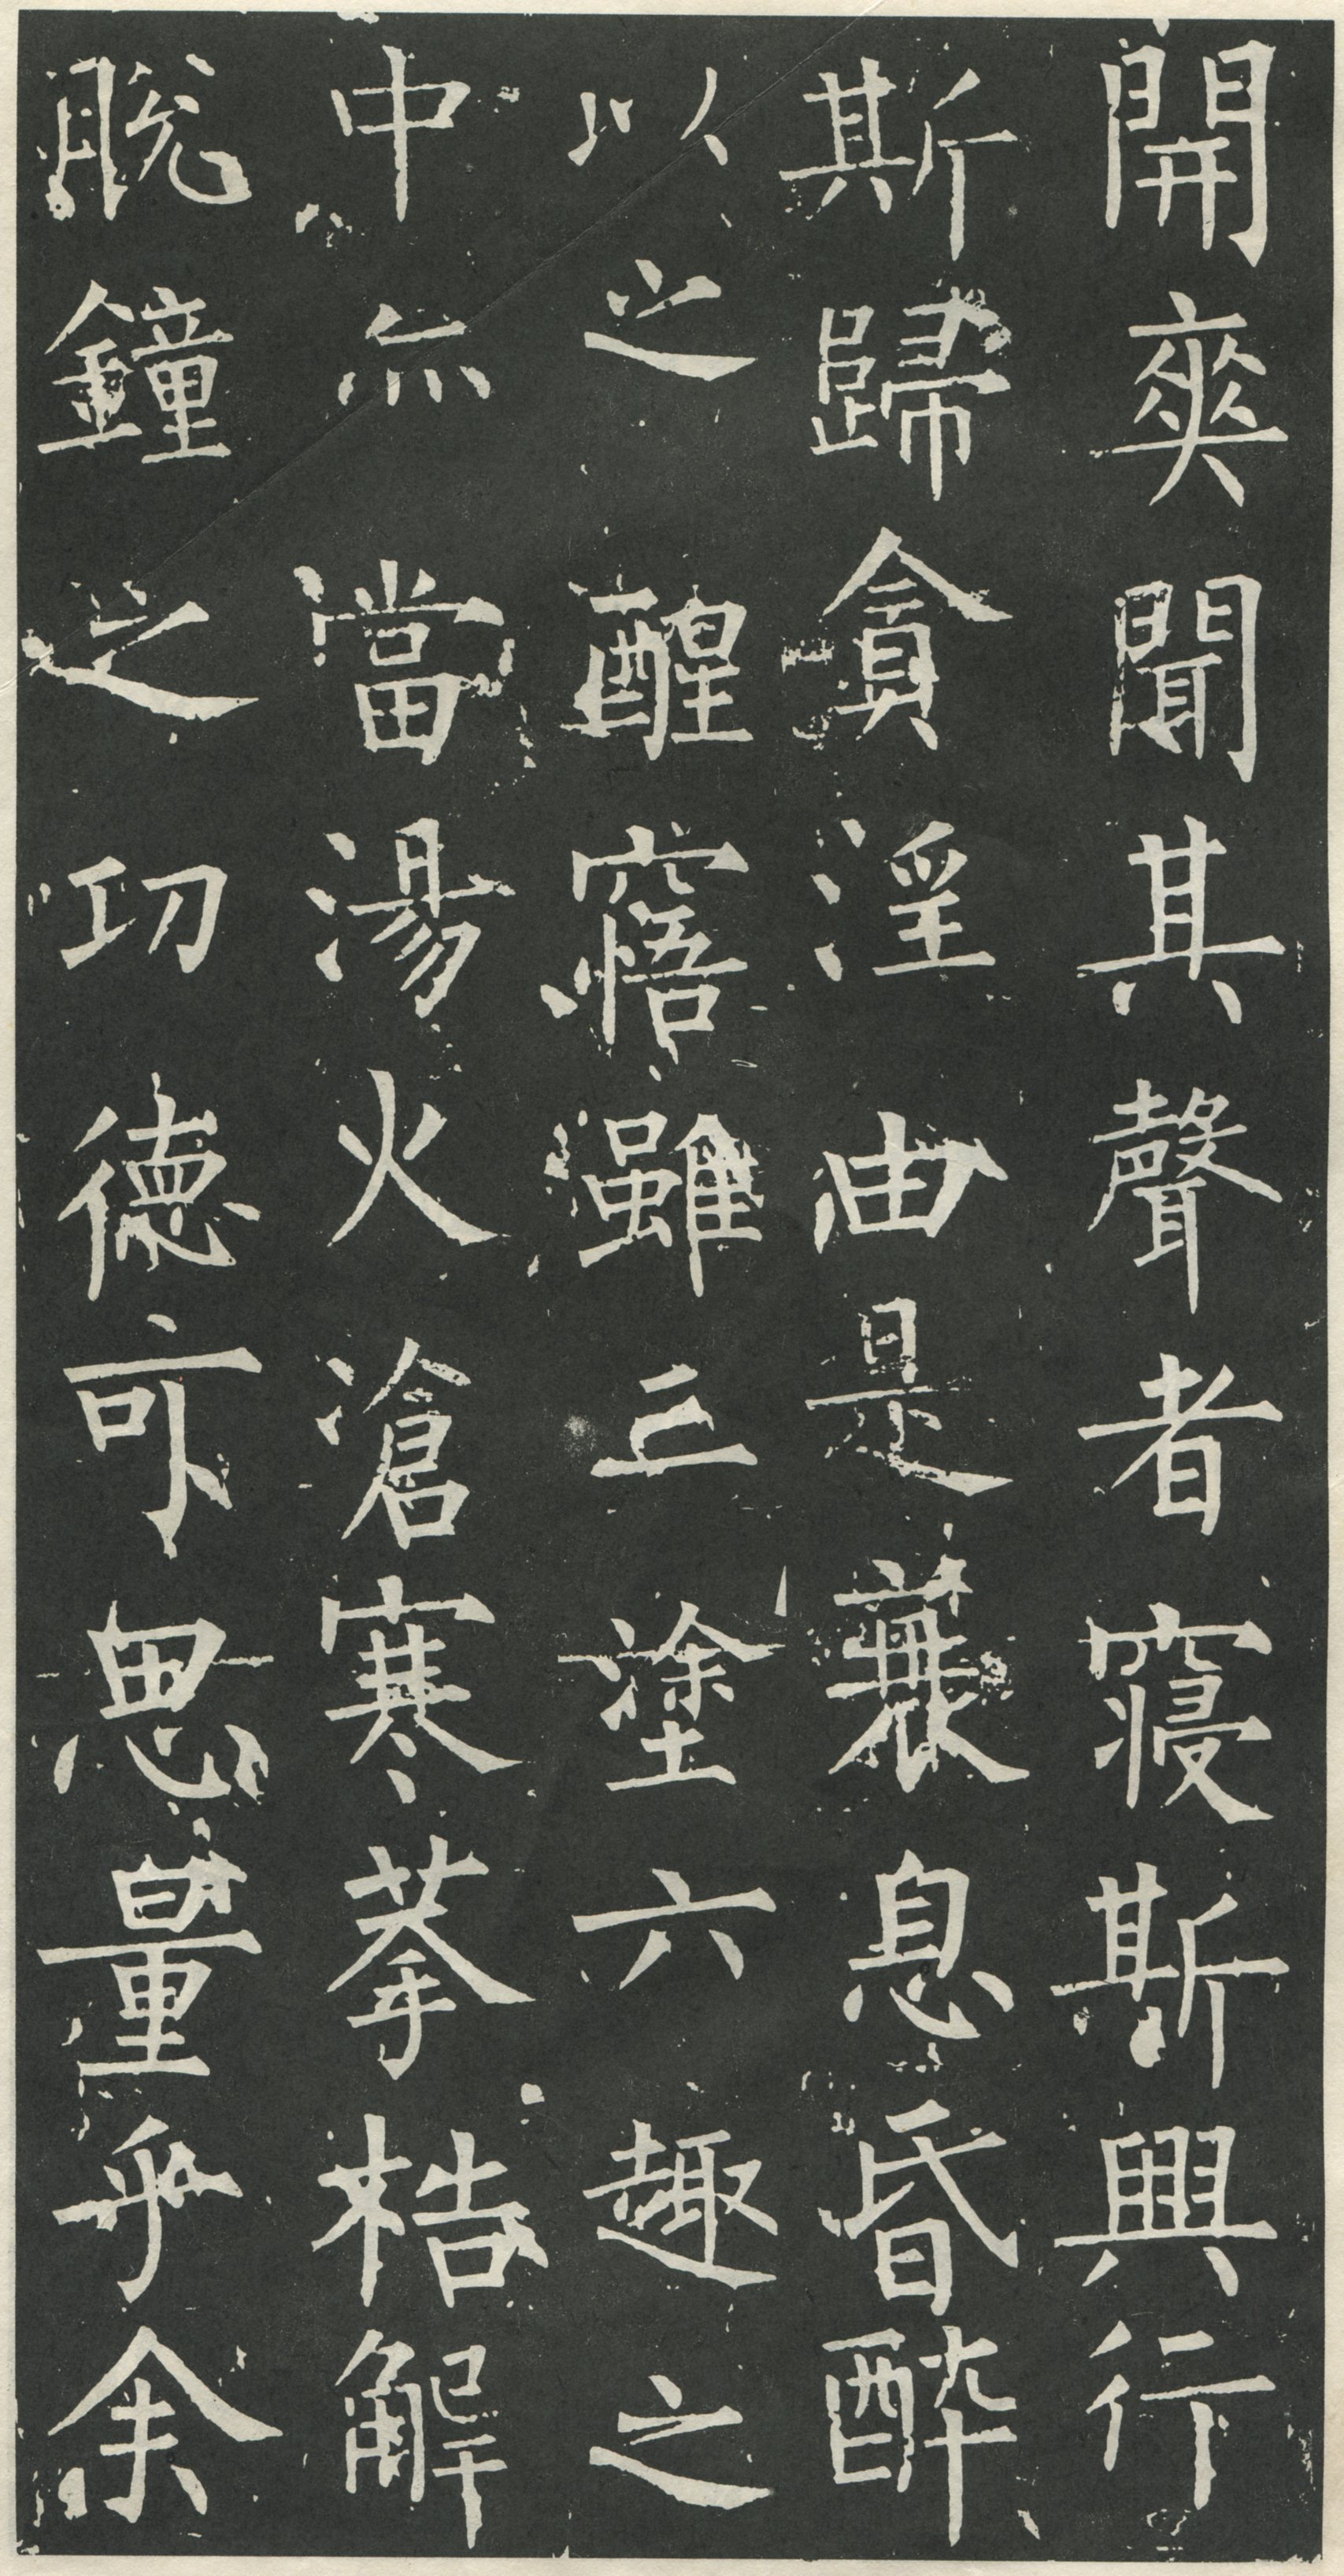 開爽聞其聲者寑斯興行
斯歸貪淫由是衰息昏醉
以之醒寤雖三塗六趣之
中亦當湯火滄寒拲梏解
脫鐘之功德可思量乎余